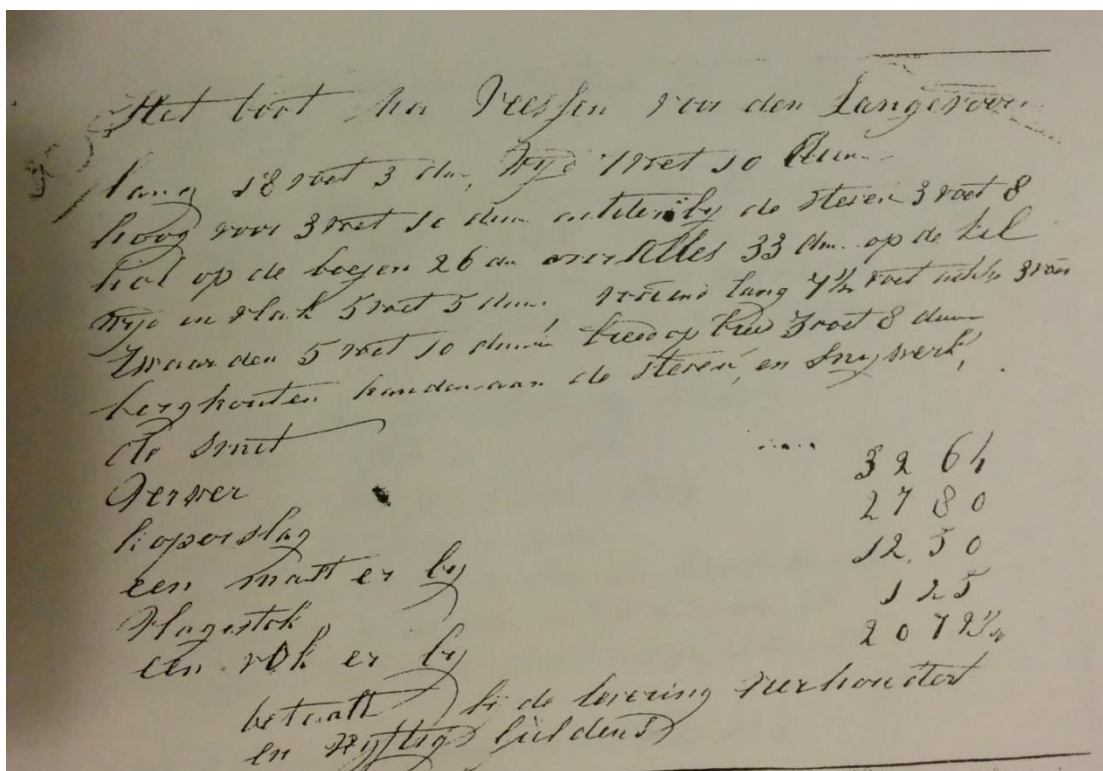 Het boot Van Reessen van den Langeroon
lang 18 voet 3 dm, wijd 7 voet 10 duim
hoog voor 3 voet 10 duim achter bij de steven 3 voet 8
hol op de boejen 26 dm over Alles 33 dm op de kiel
wijd in vlak 5 voet 5 duim, lang 7½ voet 3 voet
Zwaarden 5 voet 10 duim breed op 3 voet 8 duim
berghouten handen aan de steven, en snywerk,
de smit
Verwer 32 64
koperslag 27 80
een mast er by 12,50
Vlagestok 1 25
een rok er by 20 72½
betaalt bi de levering vierhondert
en vyftig guldens